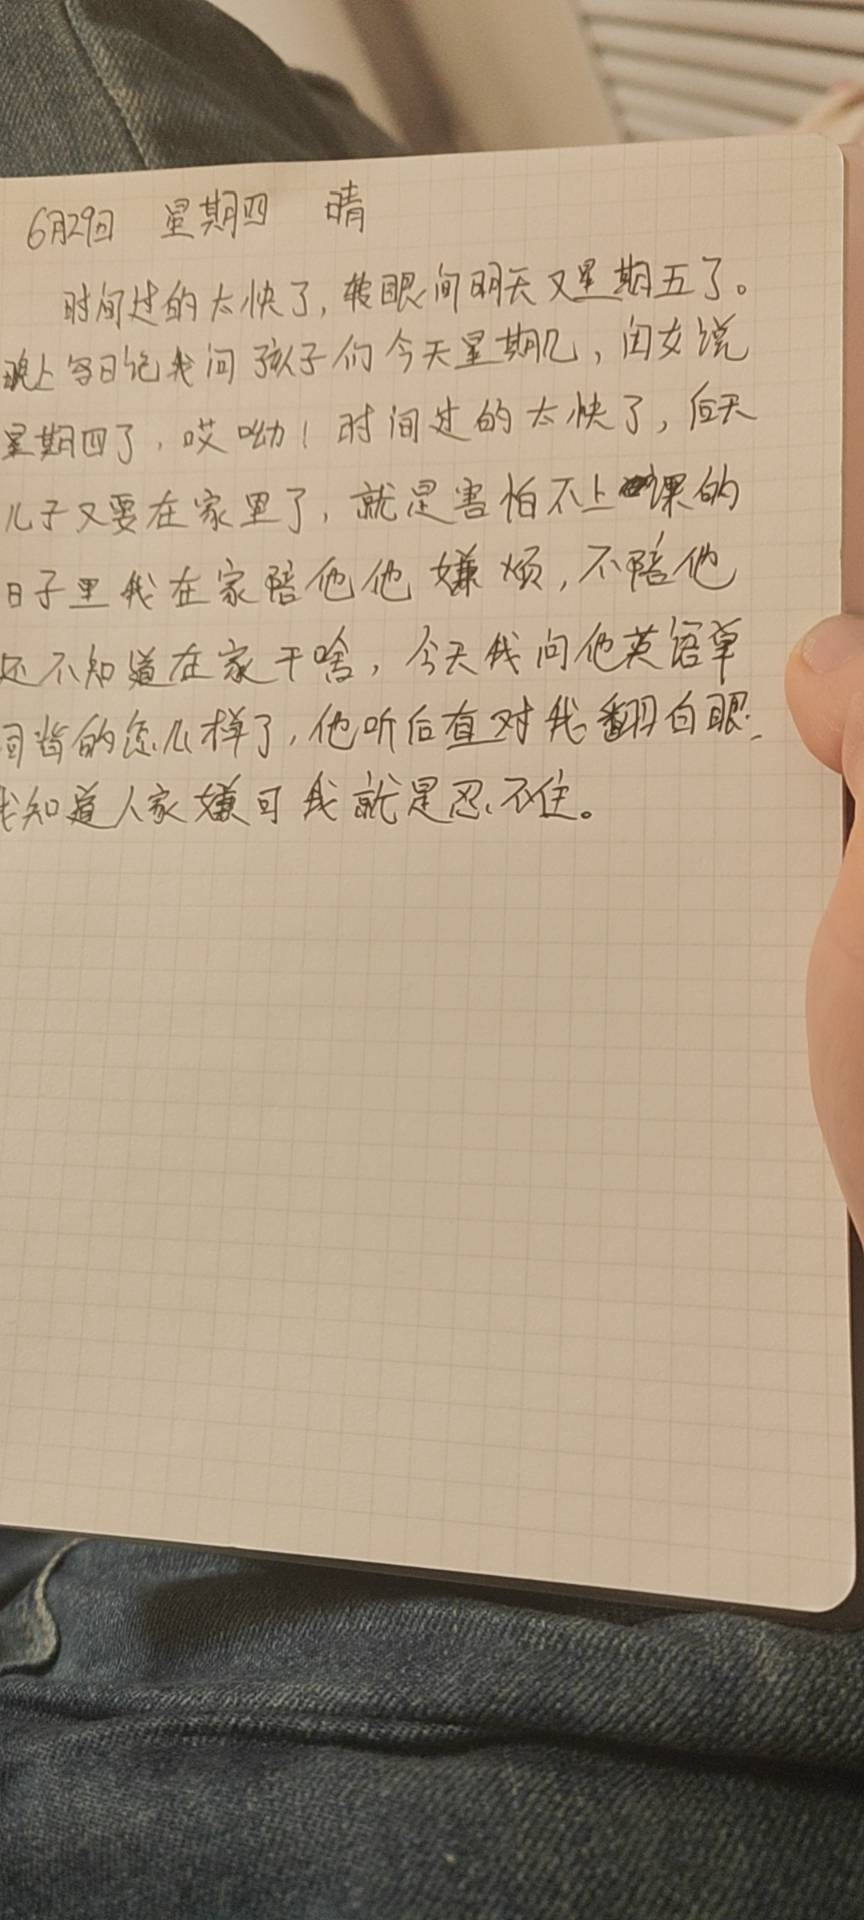 6月29日 星期四 晴
时间过的太快了,转眼间明天又星期五了。
晚上写日记我问孩子们今天星期几,闺女说
星期四了,哎呦!时间过的太快了,后天
儿子又要在家里了,就是害怕不上课的
日子里我在家陪他他嫌烦,不陪他
还不知道在家干啥,今天我问他英语单
词背的怎么样了,他听后直对我翻白眼.
我知道人家嫌可我就是忍不住。